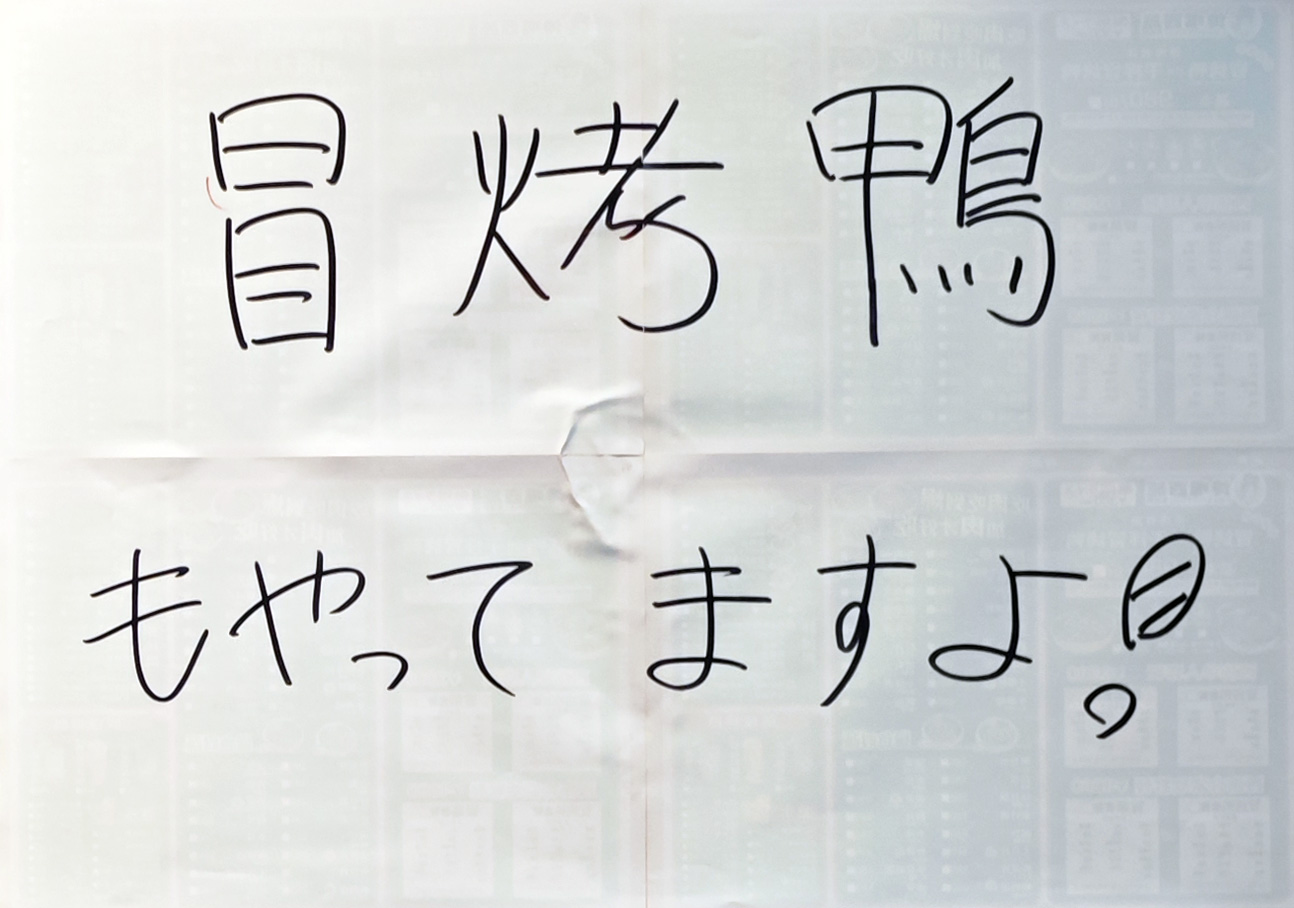 冒烤鴨
もやってますよ!